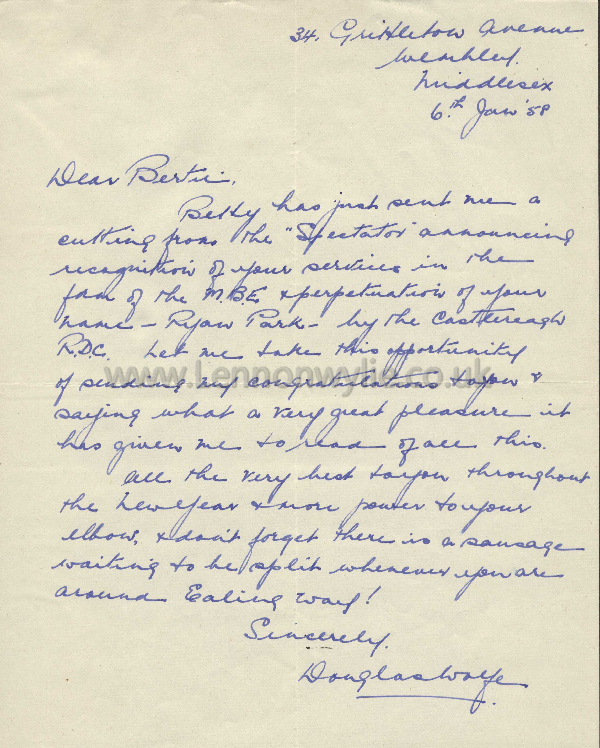 34, Grittleton Avenue
Wembley.
Middlesex
6th Jan '58
Dear Bertie,
Betty has just sent me a
cutting from the "Spectator" announcing
recognition of your services in the
form of the M.B.E. & perpetuation of your
name - Ryan Park - by the Castlereagh
R.D.C. Let me take this opportunity
www.Lennonwylie.co.uk
of sending my congratulations to you &
saying what a very great pleasure it
has given me to read of all this.
All the very best to you throughout
the New Year & more power to your
elbow, & don't forget there is a sausage
waiting to be split whenever you are
around Ealing way!
Sincerely.
Douglas Wolfe.